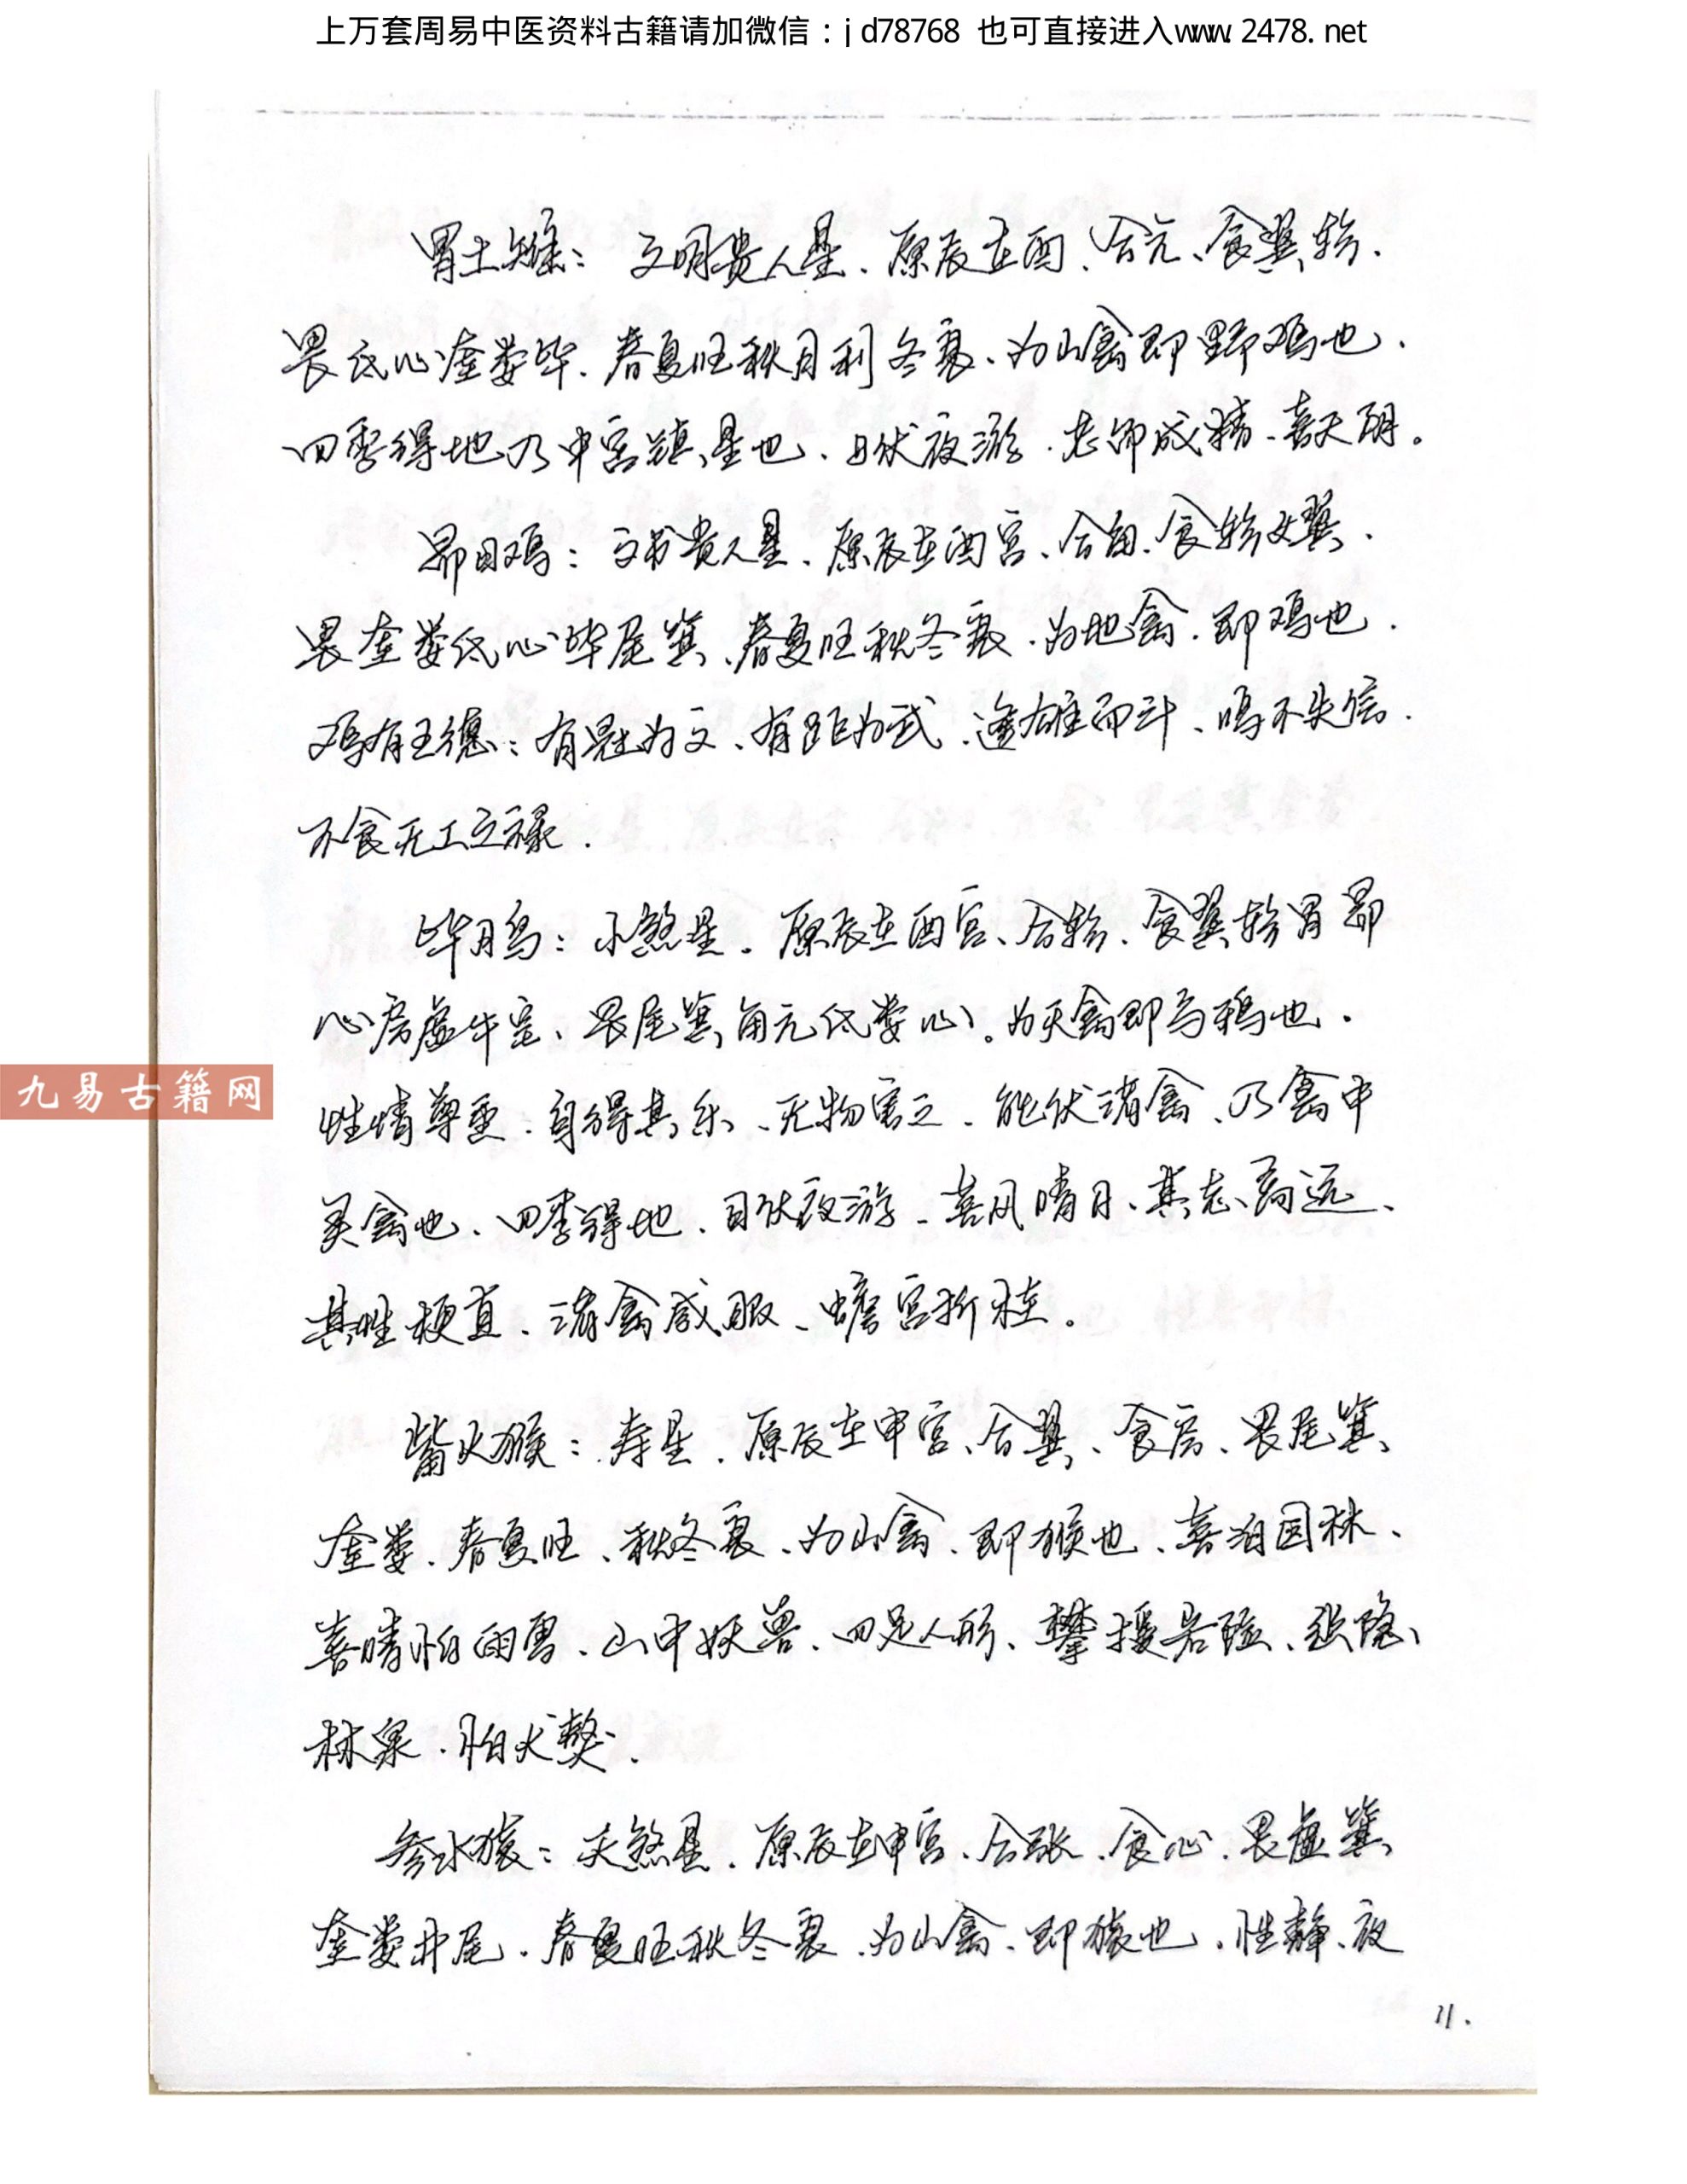 上万套周易中医资料古籍请加微信：jd78768 也可直接进入www.2478.net
胃土雉：文明贵人星、原辰在酉、合亢、食翼轸、
畏氐心奎娄毕、春夏旺秋月利冬衰、为山禽即野鸡也、
四季得地乃中宫镇星也、日伏夜游、老饰成精、喜天阴。
昴日鸡：文书贵人星、原辰在酉宫、合角、食轸女翼、
畏奎娄氐心毕尾箕、春夏旺秋冬衰、为地禽、即鸡也、
鸡有五德：有冠为文、有距为武、逢雄而斗、鸣不失信、
不食无工之禄．
毕月乌：小煞星、原辰在酉宫、合轸、食翼轸胃昴
心房虚牛室、畏尾箕角亢氐娄心。为天禽即乌鸦也．
性情尊重、自得其乐、无物害之、能伏诸禽、乃禽中
美禽也、四季得地、日伏夜游、喜风晴月、其志高远、
其性梗直、诸禽咸服、蟾宫折桂。
觜火猴：寿星、原辰在申宫、合翼、食房、畏尾箕
奎娄、春夏旺、秋冬衰、为山禽、即猴也、喜泊园林、
喜晴怕雨雪、山中妖兽、四足人形、攀援岩险、隐
林泉、怕犬獒．
参水猿：天煞星、原辰在申宫、合张、食心、畏虚箕
奎娄井尾、春夏旺秋冬衰、为山禽、即猿也、性静、夜
11.
九易古籍网